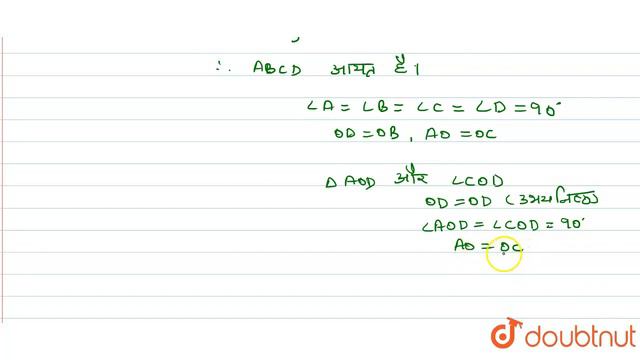 ∴ ABCD आयत है।
∠A = ∠B = ∠C = ∠D = 90°
OD = OB, AO = OC
Δ AOD और ∠COD
OD = OD (उभयनिष्ठ)
∠AOD = ∠COD = 90°
AO = OC
doubtnut